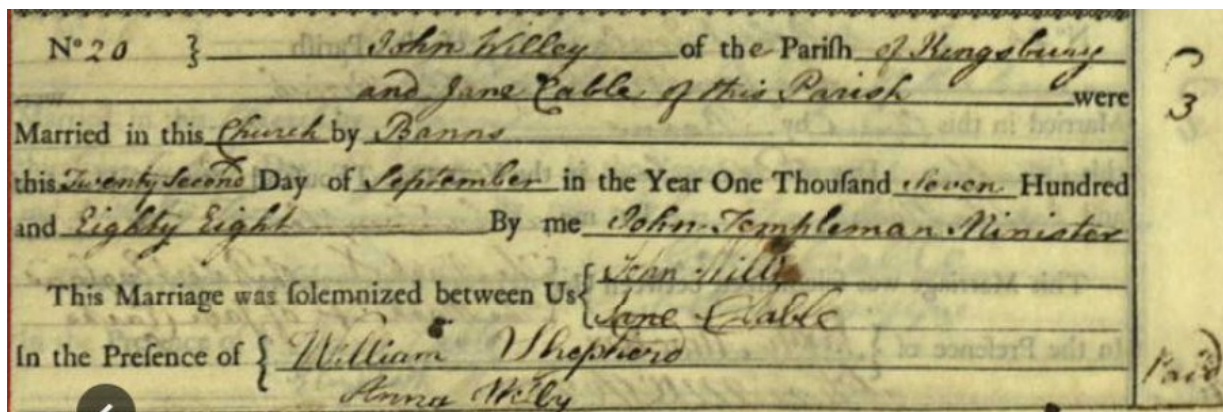 No 20 } John Willey of the Pariſh of Kingsbury
and Jane Cable of this Parish were
Married in this Church by Banns
this Twenty Second Day of September in the Year One Thouſand Seven Hundred
and Eighty Eight By me John Templeman Minister
This Marriage was ſolemnized between Us { John Willy
Jane Cable
In the Preſence of { William Shepherd
Anna Willy
3
Paid